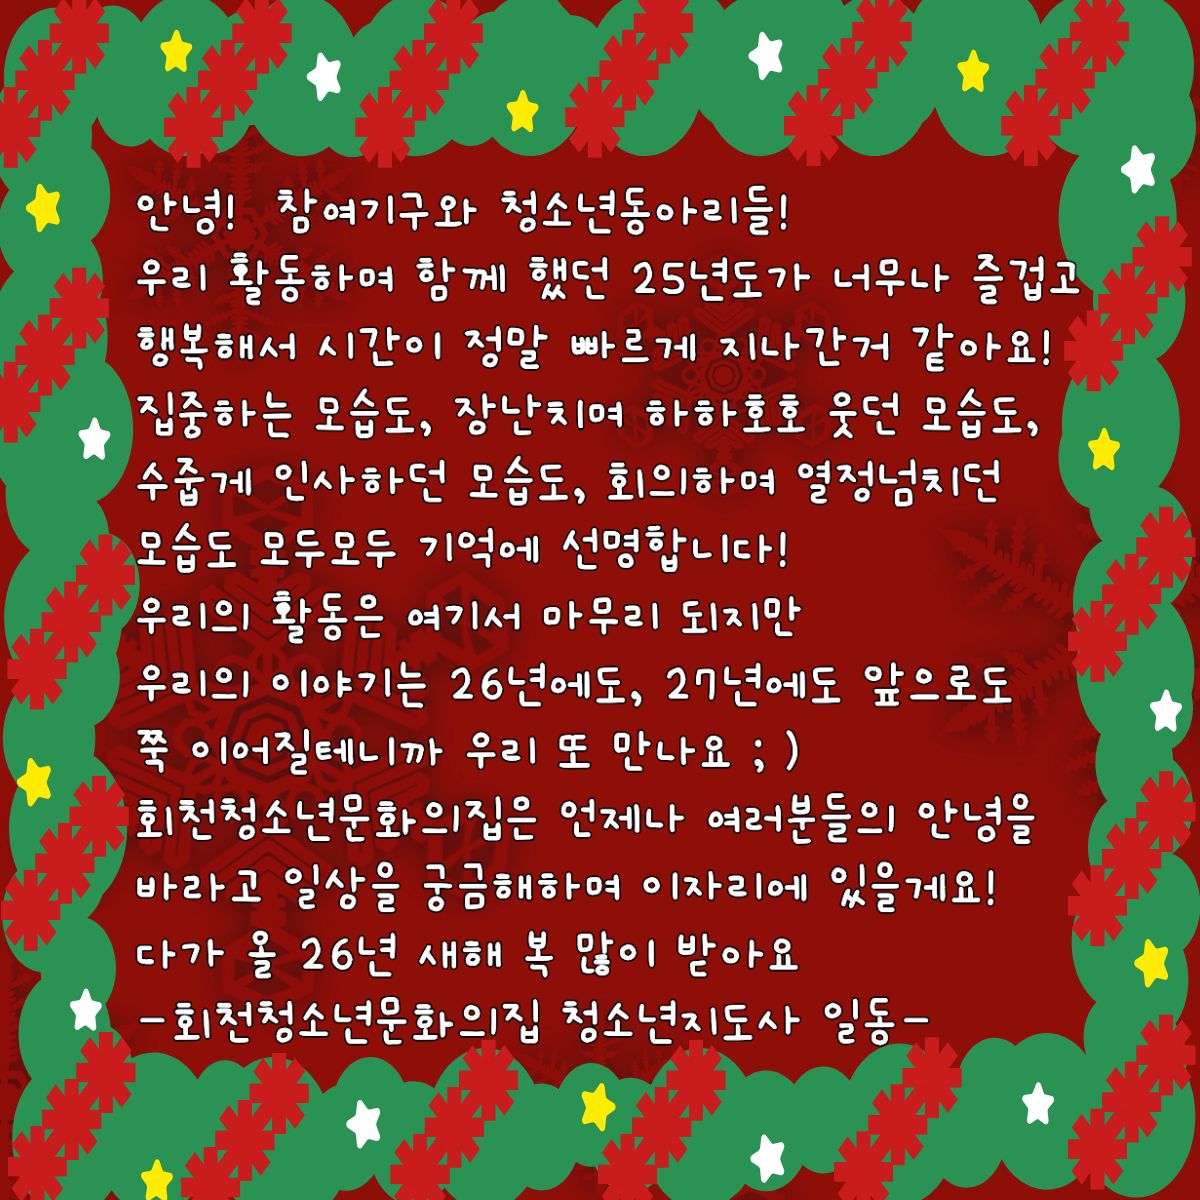 안녕! 참여기구와 청소년동아리들!
우리 활동하며 함께 했던 25년도가 너무나 즐겁고
행복해서 시간이 정말 빠르게 지나간거 같아요!
집중하는 모습도, 장난치며 하하호호 웃던 모습도,
수줍게 인사하던 모습도, 회의하며 열정넘치던
모습도 모두모두 기억에 선명합니다!
우리의 활동은 여기서 마무리 되지만
우리의 이야기는 26년에도, 27년에도 앞으로도
쭉 이어질테니까 우리 또 만나요 ; )
회천청소년문화의집은 언제나 여러분들의 안녕을
바라고 일상을 궁금해하며 이자리에 있을게요!
다가 올 26년 새해 복 많이 받아요
-회천청소년문화의집 청소년지도사 일동-